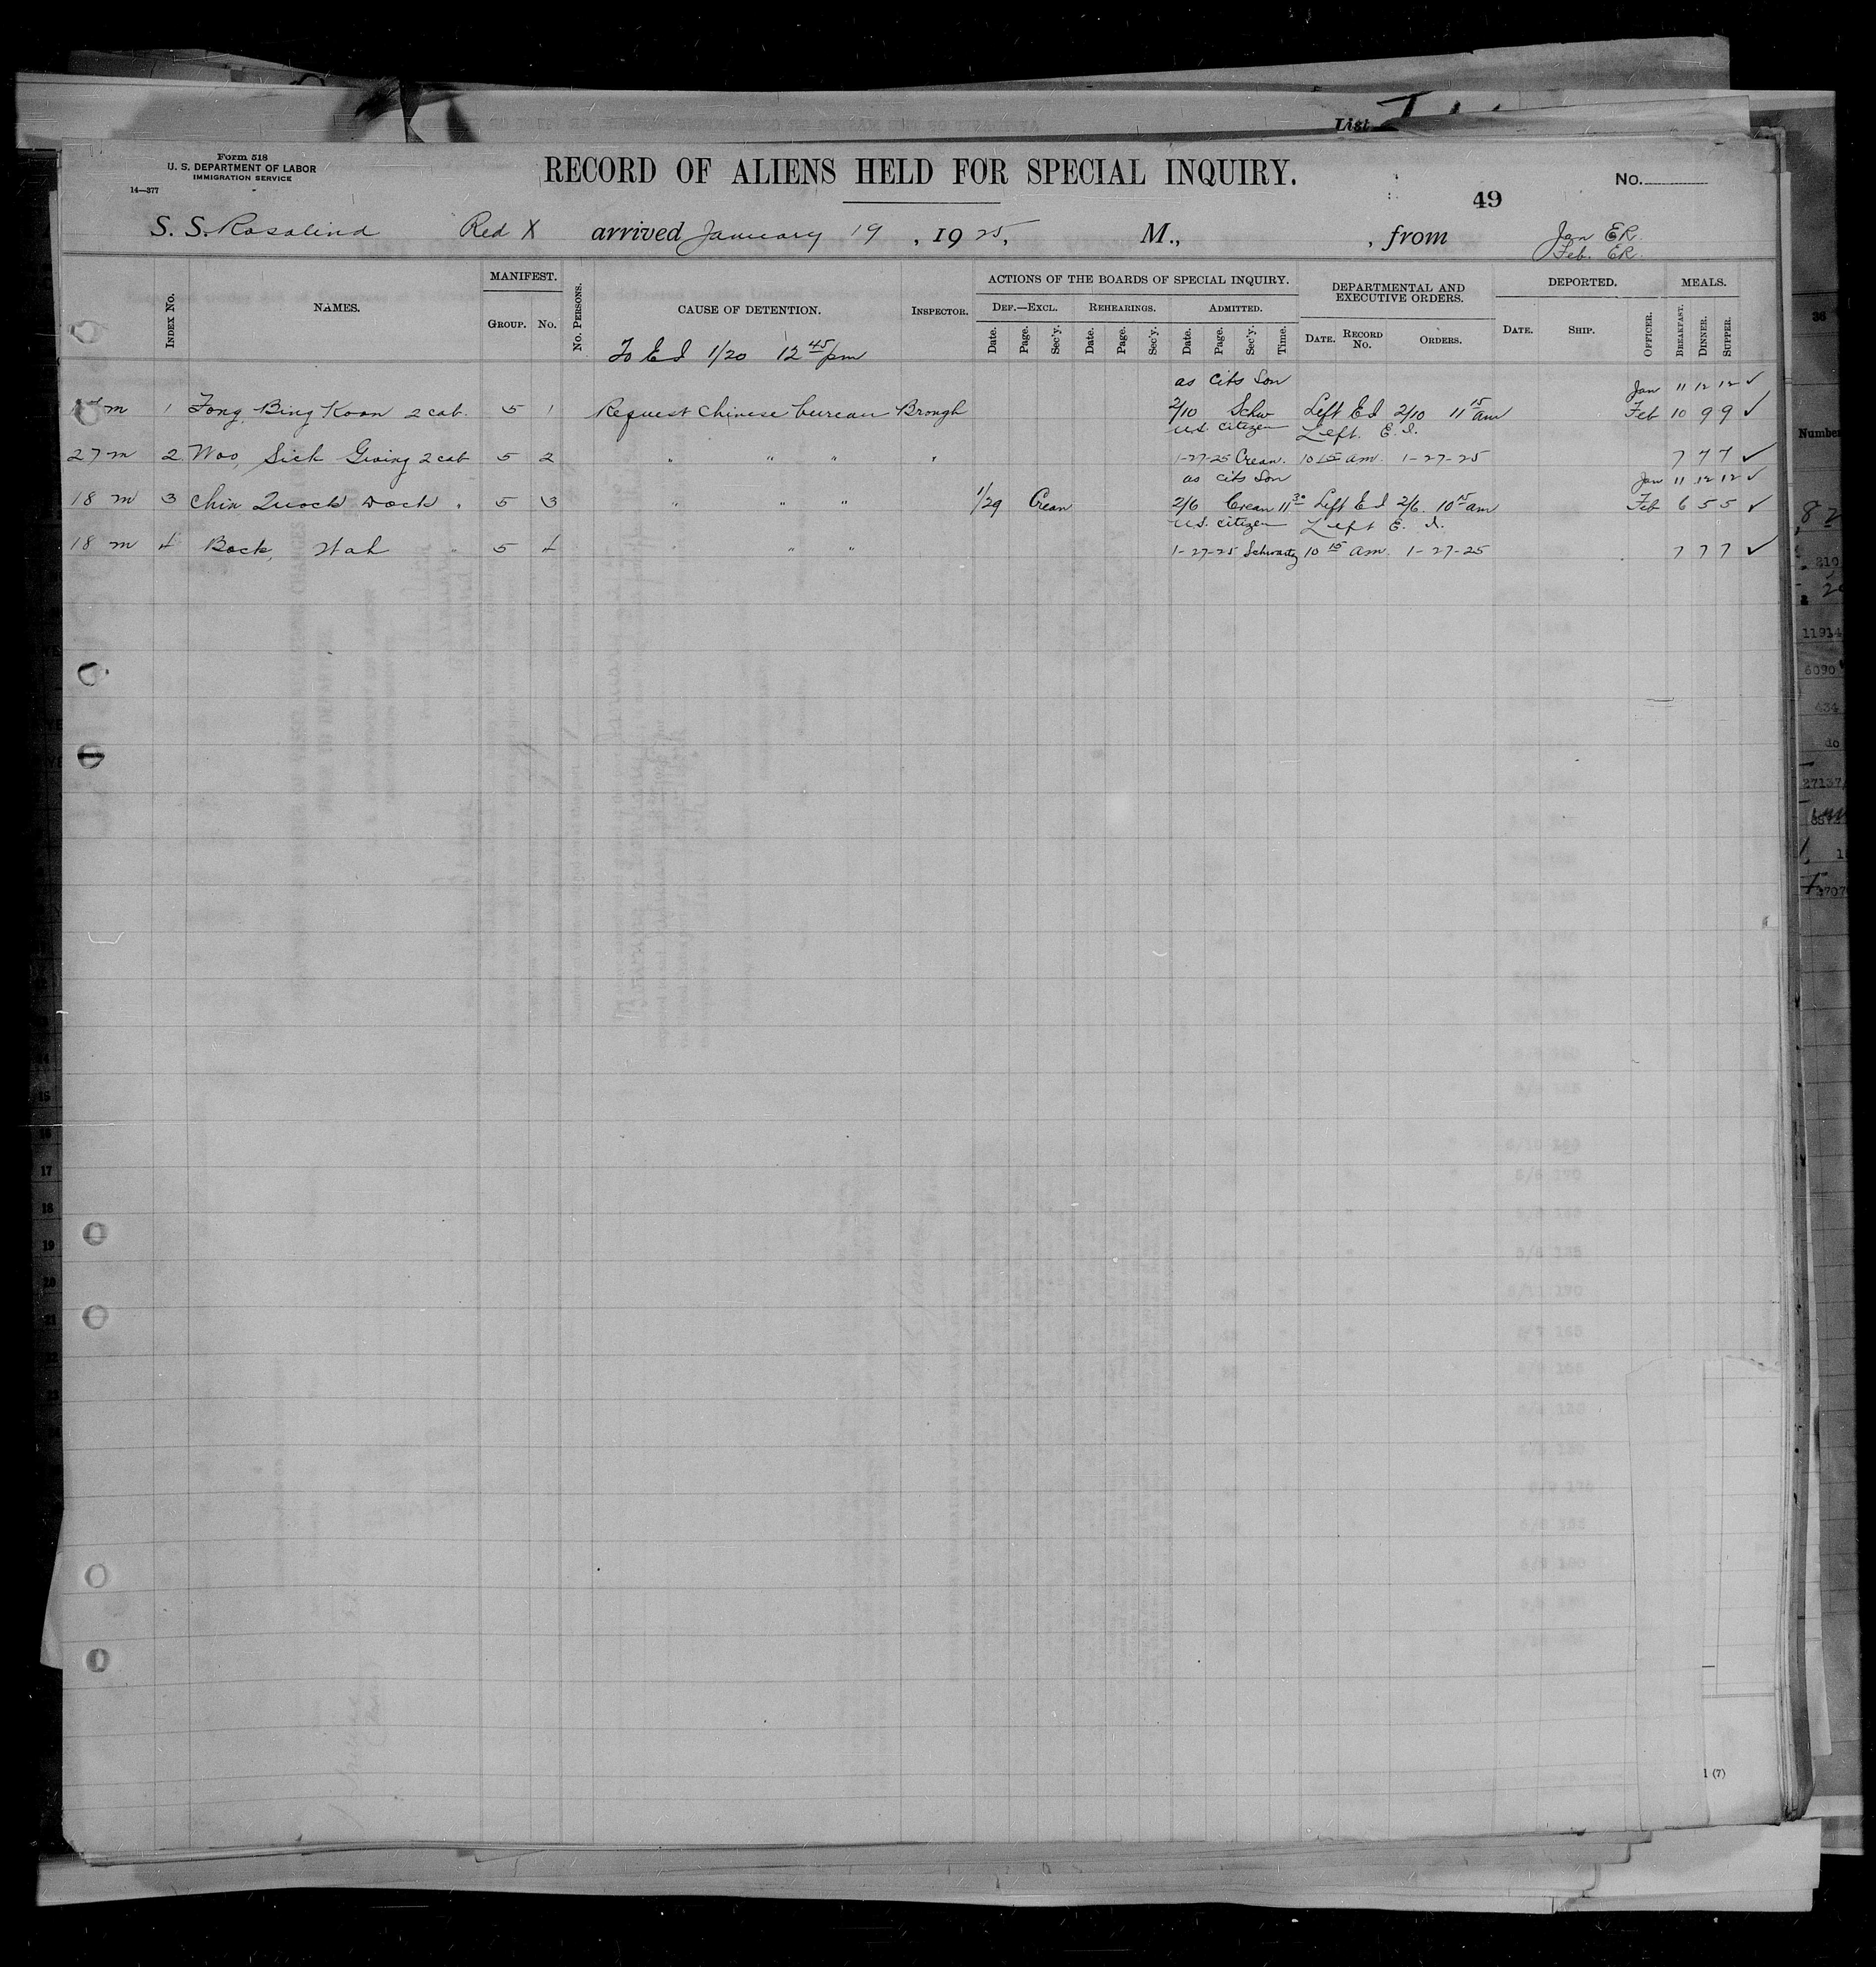 List
Form 518
U. S. DEPARTMENT OF LABOR
IMMIGRATION SERVICE
14—377
RECORD OF ALIENS HELD FOR SPECIAL INQUIRY.
No.
49
S. S. Rosalind Red X arrived January 19, 1925, M., , from Jan ER.
Feb. ER.
INDEX NO. NAMES. MANIFEST. GROUP. NO. NO. PERSONS. CAUSE OF DETENTION. INSPECTOR. ACTIONS OF THE BOARDS OF SPECIAL INQUIRY. DEF.—EXCL. Date. Page. Sec'y. REHEARINGS. Date. Page. Sec'y. ADMITTED. Date. Page. Sec'y. Time. DEPARTMENTAL AND EXECUTIVE ORDERS. DATE. RECORD NO. ORDERS. DEPORTED. DATE. SHIP. OFFICER. MEALS. BREAKFAST. DINNER. SUPPER.
To E I 1/20 12 45 pm
as cits son Jan 11 12 12 ✓
m 1 Fong, Bing Koon 2 cab. 5 1 Request Chinese bureau Brough 2/10 Schw Left E I 2/10 11 15 am Feb 10 9 9 ✓
U.S. citizen Left. E. I.
27 m 2 Woo, Sick Gwing 2 cab 5 2 " " " " 1-27-25 Crean. 10 15 am. 1-27-25 7 7 7 ✓
as cits son Jan 11 12 12 ✓
18 m 3 Chin Quock Dock " 5 3 " " " 1/29 Crean 2/6 Crean 11 30 Left E I 2/6. 10 15 am Feb 6 5 5 ✓
U.S. citizen Left E. I.
18 m 4 Bock, Wah " 5 4 " " " 1-27-25 Schwartz 10 15 am. 1-27-25 7 7 7 ✓
36
Number
219
11914
6090
434
do
27137
15
17
18
19
20
21
1 (7)